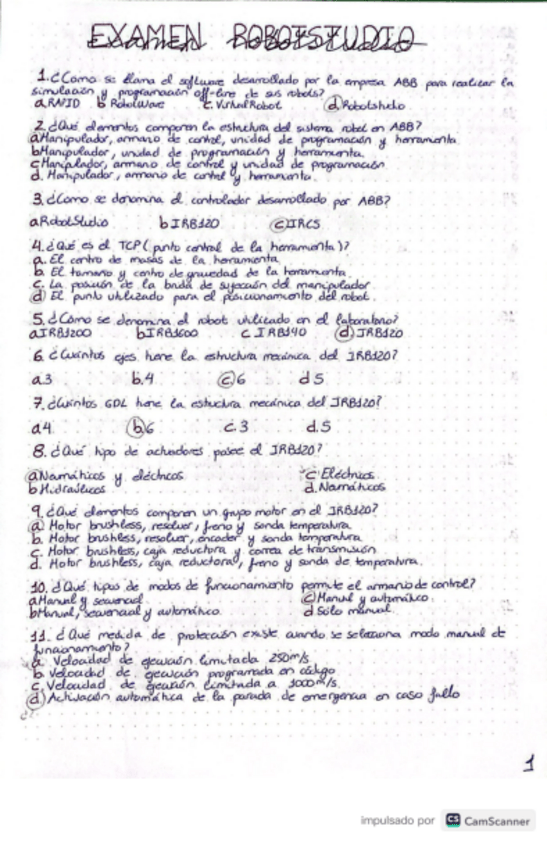 EXAMEN ROBOTSTUDIO
1. ¿Como se llama el software desarrollado por la empresa ABB para realizar la
simulación y programación off-line de sus robots?
a. RAPID b RobotWave c. VirtualRobot d. Robotstudio
2. ¿Qué elementos componen la estructura del sistema robot en ABB?
a Manipulador, armario de control, unidad de programación y herramienta.
b Manipulador, unidad de programación y herramienta.
c Manipulador, armario de control y unidad de programación
d. Manipulador, armario de control y herramienta.
3. ¿Como se denomina el controlador desarrollado por ABB?
a RobotStudio b IRB120 c IRC5
4. ¿Qué es el TCP (punto control de la herramienta)?
a. El centro de masas de la herramienta.
b. El tamano y centro de gravedad de la herramienta.
c. La posición de la brida de sujección del manipulador
d El punto utilizado para el posicionamiento del robot.
5. ¿Cómo se denomina el robot utilizado en el laboratorio?
a IRB1200 b IRB1600 c IRB140 d IRB120
6. ¿Cuántos ejes tiene la estructura mecánica del IRB120?
a 3 b. 4 c 6 d 5
7. ¿Cuántos GDL tiene la estructura mecánica del IRB120?
a 4 b 6 c. 3 d. 5
8. ¿Qué tipo de actuadores posee el IRB120?
a Neumáticos y eléctricos c Eléctricos
b Hidraúlicos d. Neumáticos
9. ¿Qué elementos componen un grupo motor en el IRB120?
a Motor brushless, resolver, freno y sonda temperatura
b. Motor brushless, resolver, encoder y sonda temperatura
c. Motor brushless, caja reductora y correa de transmisión
d. Motor brushless, caja reductora, freno y sonda de temperatura.
10. ¿Qué tipos de modos de funcionamiento permite el armario de control?
a Manual y secuencial c Manual y automático.
b Manual, secuencial y automático d Sólo manual
11. ¿Qué medida de protección existe cuando se selecciona modo manual de
funcionamiento?
a. Velocidad de ejecución limitada 250m/s
b. Velocidad de ejecución programada en código
c. Velocidad de ejecución limitada a 1000m/s
d Activación automática de la parada de emergencia en caso fallo
1
impulsado por CS CamScanner